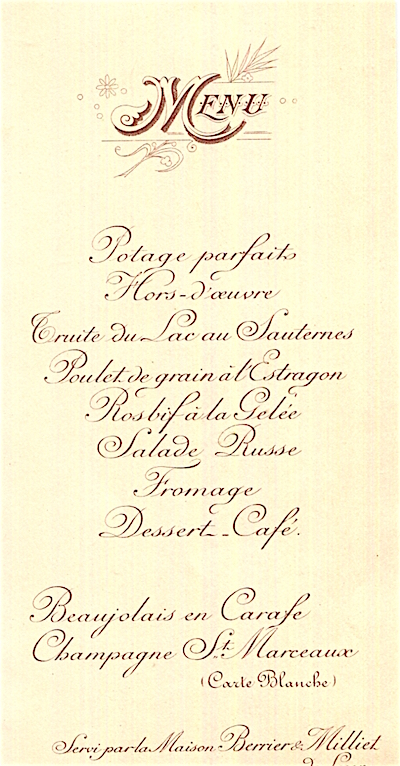 MENU
Potage parfait
Hors-d'œuvre
Truite du Lac au Sauternes
Poulet de grain à l'Estragon
Rosbif à la Gelée
Salade Russe
Fromage
Dessert - Café.
Beaujolais en Carafe
Champagne St. Marceaux
(Carte Blanche)
Servi par la Maison Berrier & Milliet